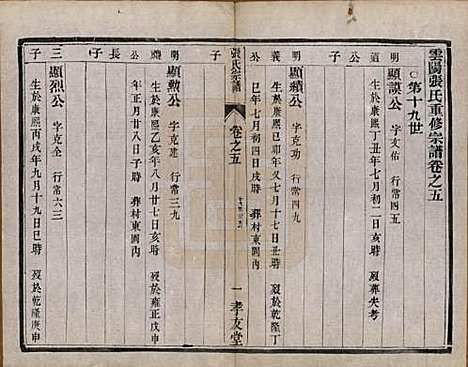 雲陽張氏重修宗譜卷之五
第十九世
道明公子 顯謨公 字友佑 行常四五
生於康熙丁丑年七月初二日亥時 歿葬失考
明義公子 顯績公 字克功 行常四九
生於康熙己卯年又七月十七日丑時 歿於乾隆丁
巳年七月初四日戌時 葬村東園內
張氏宗譜
卷之五
一 孝友堂
明公長子 顯勲公 字克建 行常三九
生於康熙乙亥年八月廿七日亥時 歿於雍正戊申
年正月廿八日子時 葬村東園內
三子 顯臨公 字克全 行常六三
生於康熙丙戌年九月十九日巳時 歿於乾隆庚申